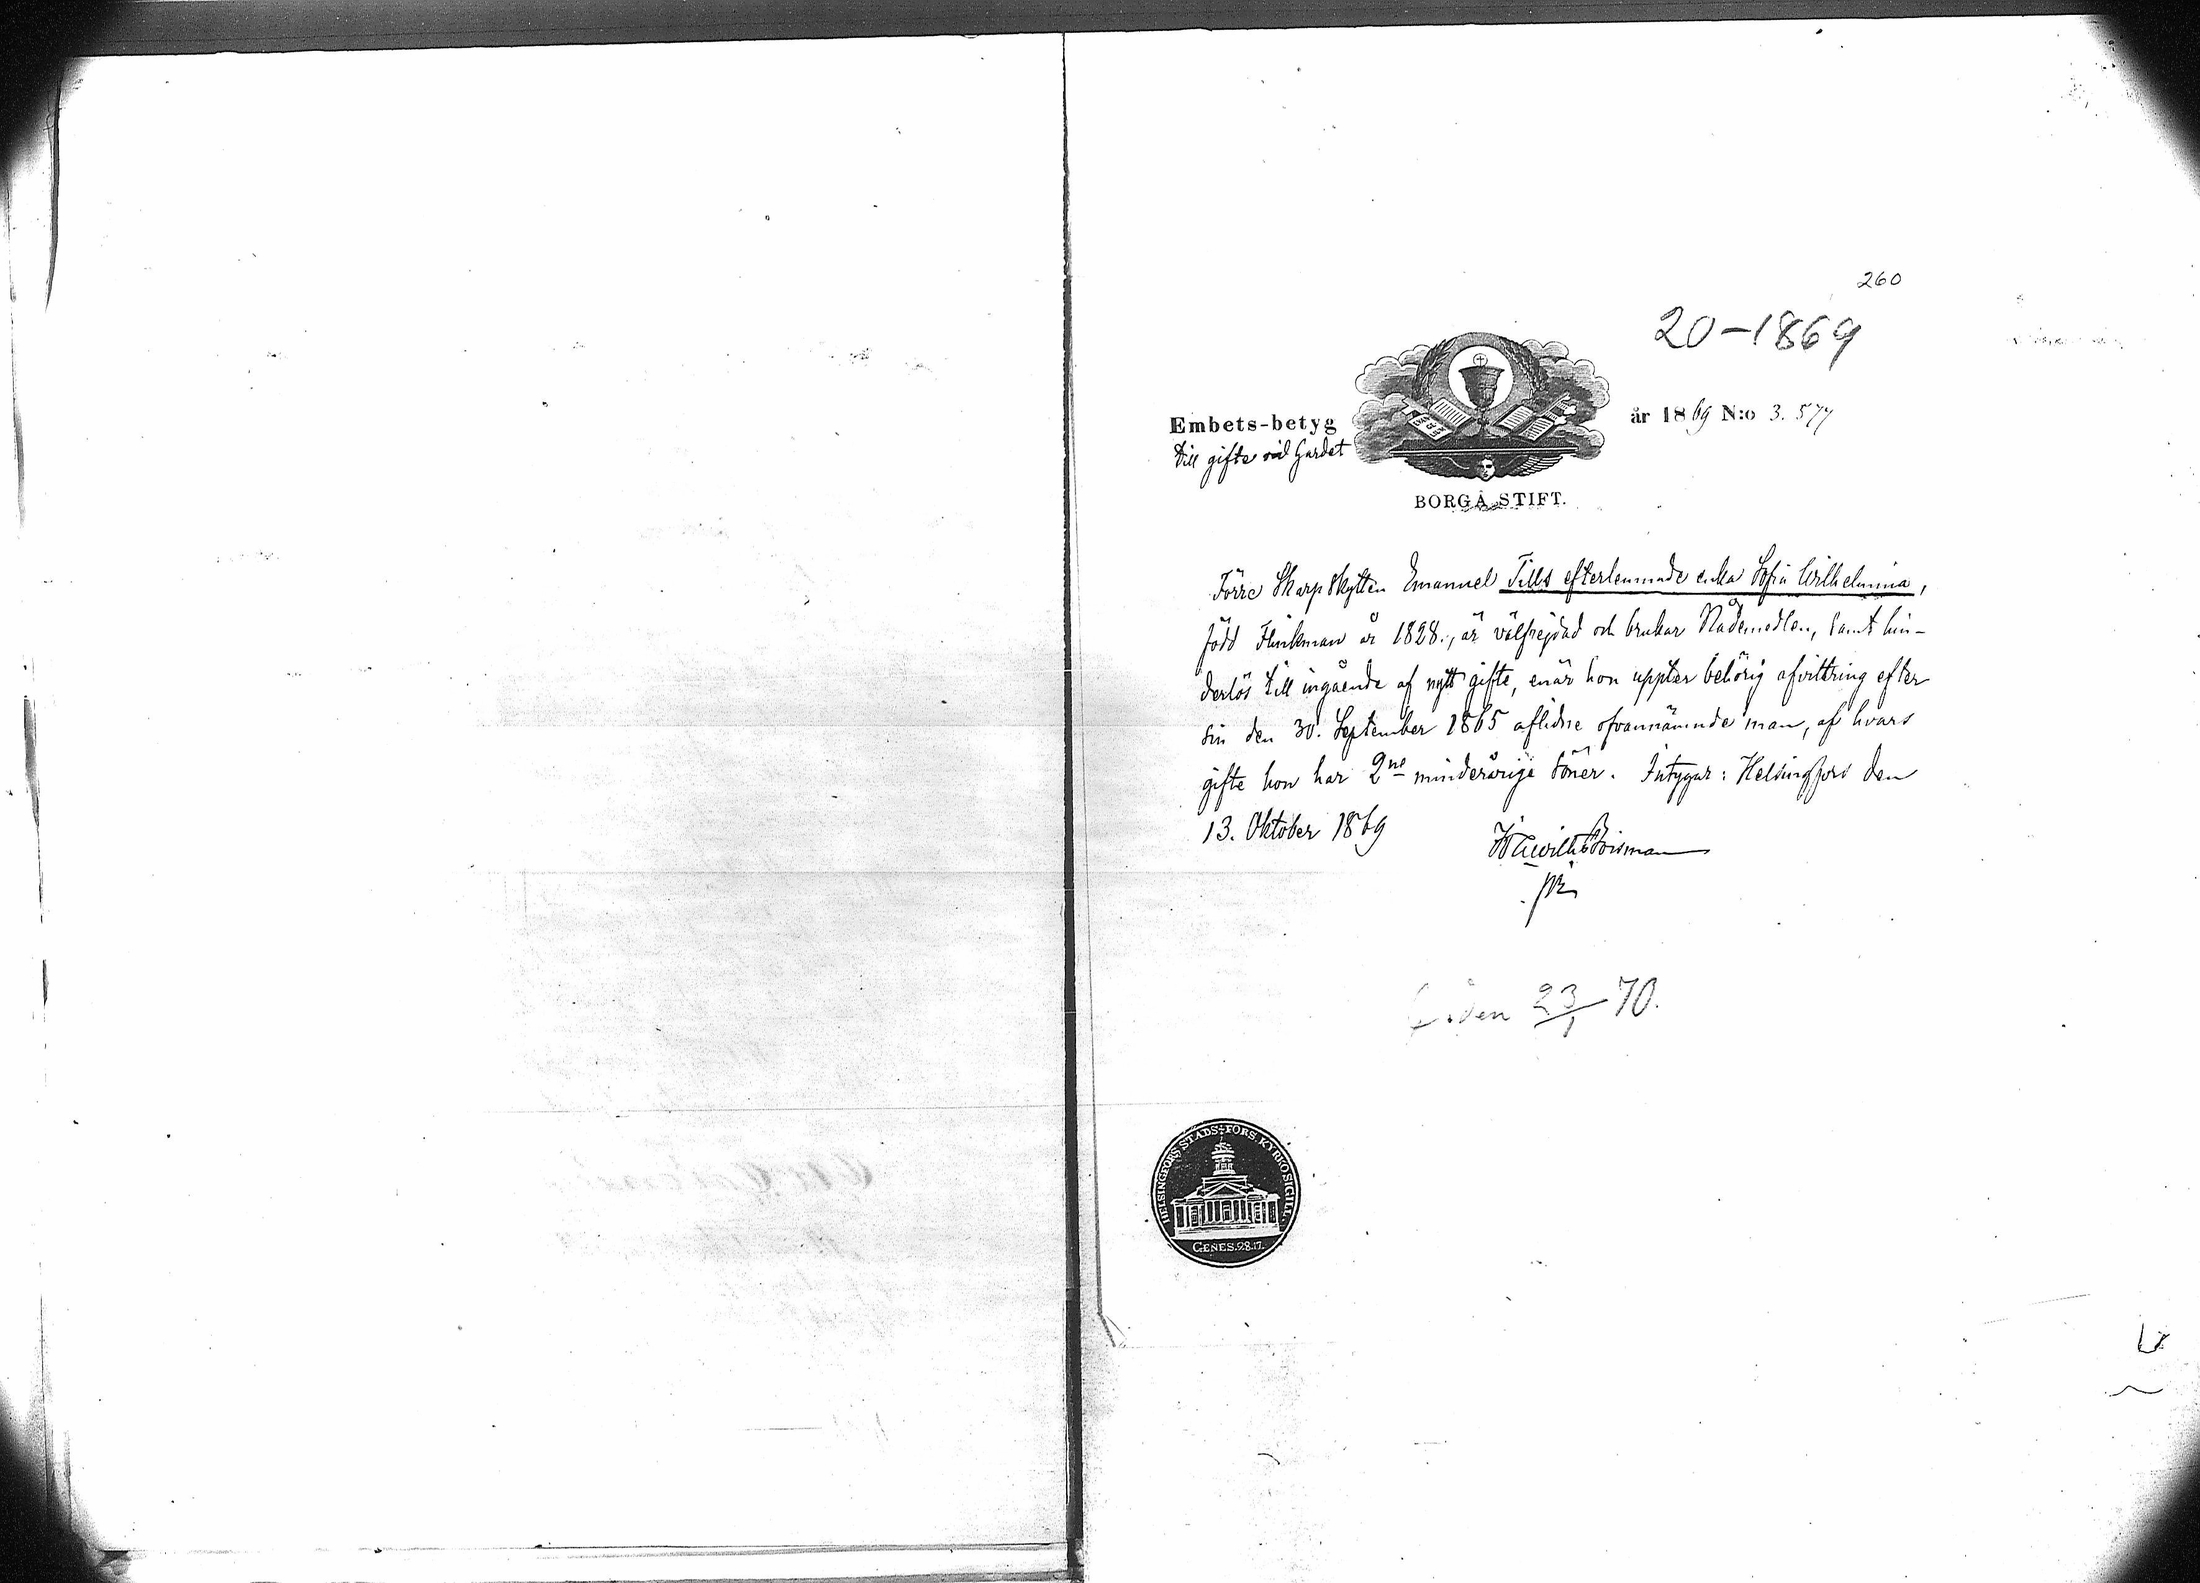 260
20-1869
Embets-betyg
till gifte vid Gardet
år 1869 N:o 3.577
BORGÅ STIFT.
Förre Skarpskytten Emanuel Tills efterlemnade enka Sofia Wilhelmina,
född Flinkman år 1828., är välfrejdad och brukar Nådemedlen, samt hin-
derlös till ingående af nytt gifte, enär hon uppter behörig afvittring efter
sin den 30. September 1865 aflidne ofvannämnde man, af hvars
gifte hon har 2ne minderårige söner. Intygar: Helsingfors den
13. Oktober 1869
den 23/1 70.
HELSINGFORS STADS-FÖRS. KYRKO SIGILL.
GENES. 28.17.